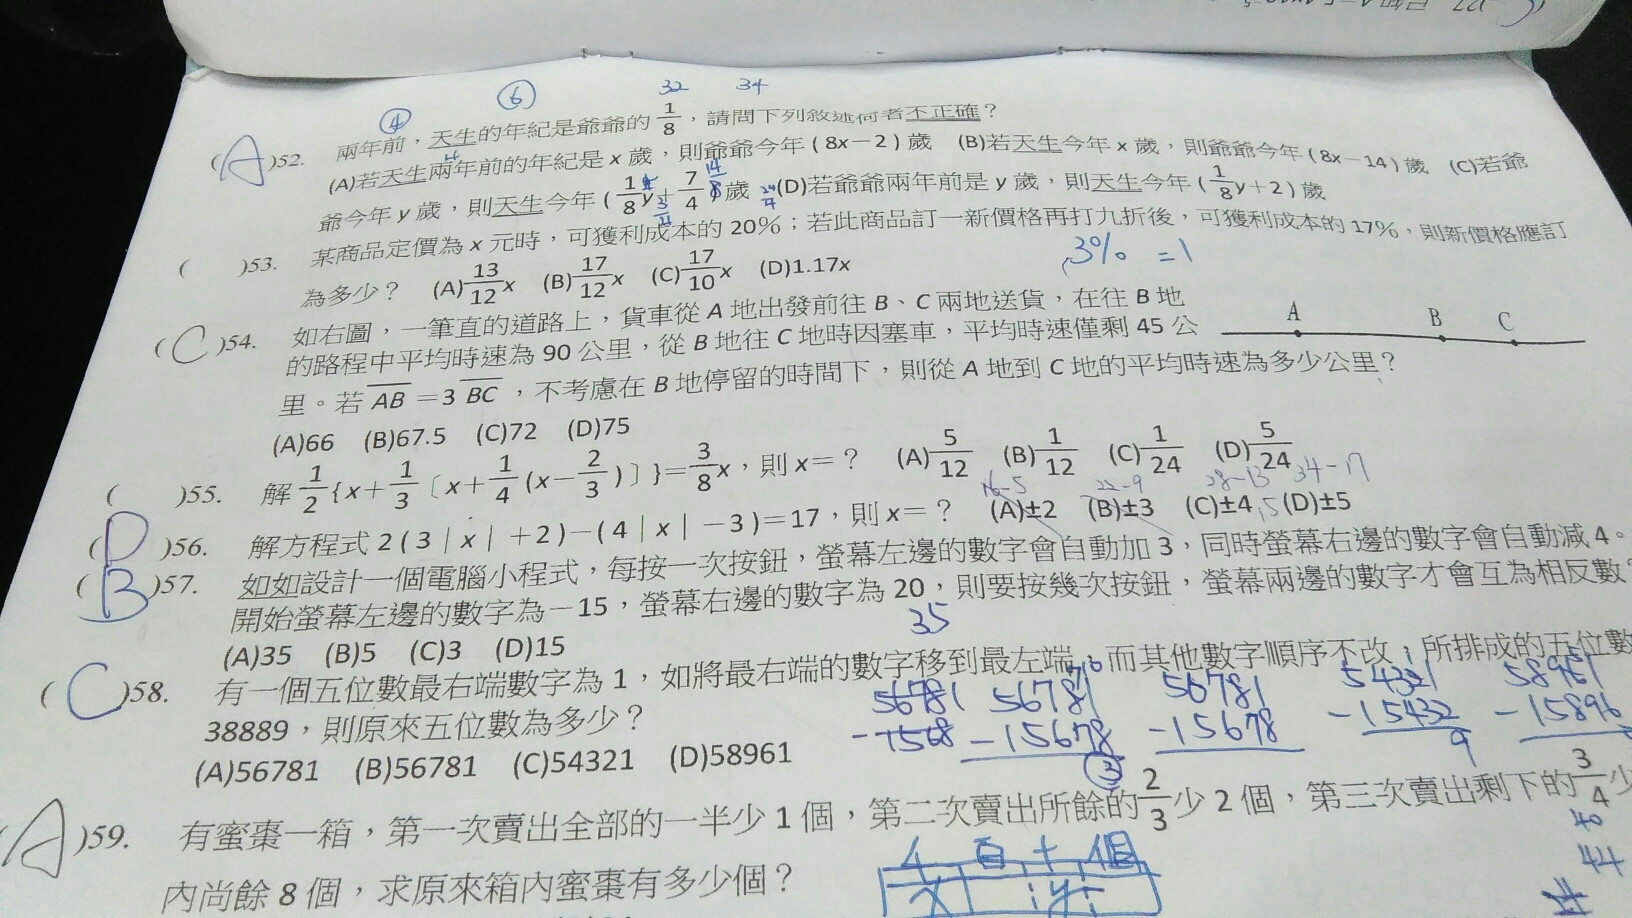 ④ ⑥ 32 34
(A)52. 兩年前，天生的年紀是爺爺的 1/8，請問下列敘述何者不正確？
(A)若天生兩年前的年紀是 x 歲，則爺爺今年 ( 8x－2 ) 歲 (B)若天生今年 x 歲，則爺爺今年 ( 8x－14 ) 歲 (C)若爺
爺今年 y 歲，則天生今年 ( 1/8 y + 7/4 ) 歲 (D)若爺爺兩年前是 y 歲，則天生今年 ( 1/8 y + 2 ) 歲
( )53. 某商品定價為 x 元時，可獲利成本的 20%；若此商品訂一新價格再打九折後，可獲利成本的 17%，則新價格應訂
為多少？ (A) 13/12 x (B) 17/12 x (C) 17/10 x (D)1.17x
3% =1
(C)54. 如右圖，一筆直的道路上，貨車從 A 地出發前往 B、C 兩地送貨，在往 B 地
的路程中平均時速為 90 公里，從 B 地往 C 地時因塞車，平均時速僅剩 45 公
里。若 AB =3 BC ，不考慮在 B 地停留的時間下，則從 A 地到 C 地的平均時速為多少公里？
A B C
(A)66 (B)67.5 (C)72 (D)75
( )55. 解 1/2 { x + 1/3〔 x + 1/4 ( x－2/3 )〕}= 3/8 x，則 x＝？ (A) 5/12 (B) 1/12 (C) 1/24 (D) 5/24
16-5 22-9 28-13 34-17
(D)56. 解方程式 2 ( 3｜x｜+2 )－( 4｜x｜－3 )＝17，則 x＝？ (A)±2 (B)±3 (C)±4 (D)±5
(B)57. 如如設計一個電腦小程式，每按一次按鈕，螢幕左邊的數字會自動加 3，同時螢幕右邊的數字會自動減 4。
開始螢幕左邊的數字為－15，螢幕右邊的數字為 20，則要按幾次按鈕，螢幕兩邊的數字才會互為相反數？
35
(A)35 (B)5 (C)3 (D)15
(C)58. 有一個五位數最右端數字為 1，如將最右端的數字移到最左端，而其他數字順序不改，所排成的五位數
38889，則原來五位數為多少？
56781 56781 56781 54321 58961
-1568 -15678 -15678 -15432 -15896
③ 9
(A)56781 (B)56781 (C)54321 (D)58961
(A)59. 有蜜棗一箱，第一次賣出全部的一半少 1 個，第二次賣出所餘的 2/3 少 2 個，第三次賣出剩下的 3/4 少
40
44
內尚餘 8 個，求原來箱內蜜棗有多少個？
百 十 個